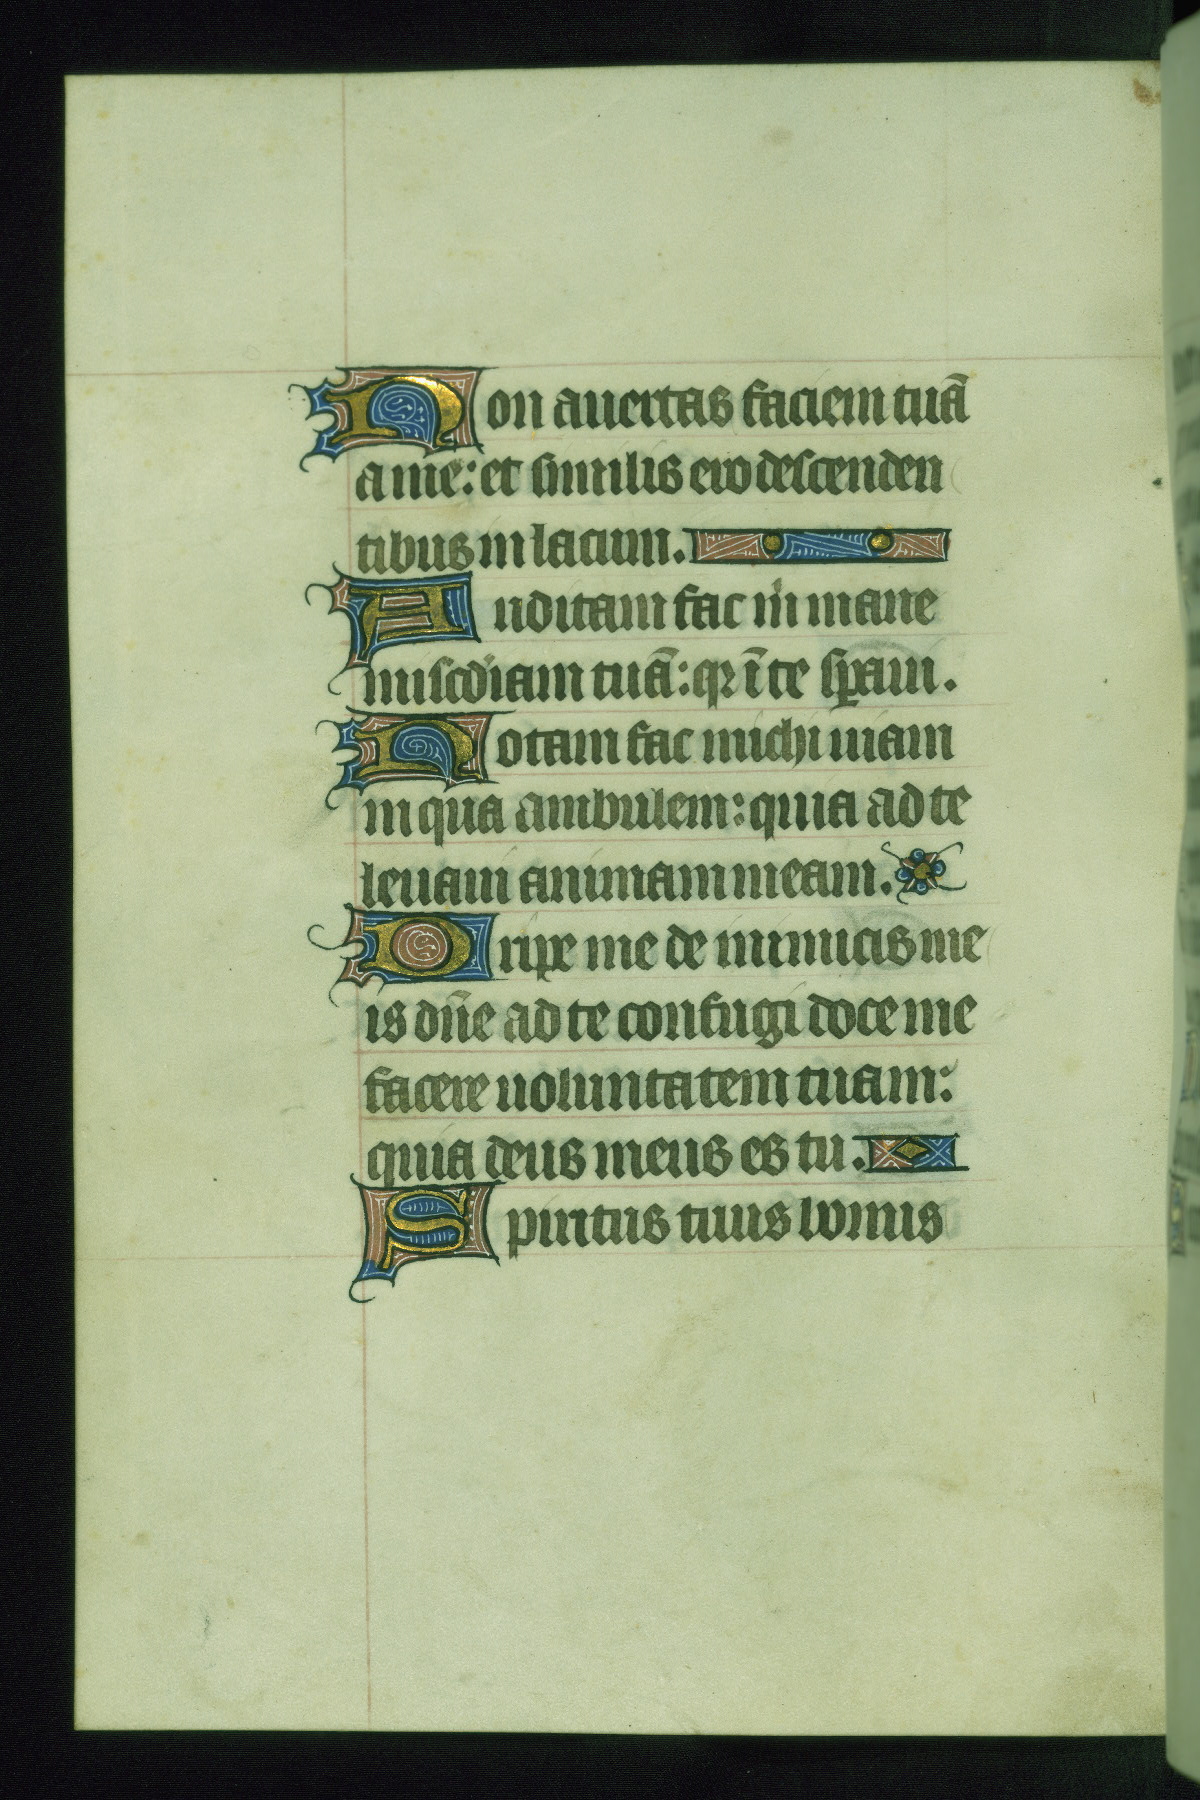 Non auertas faciem tuā
a me: et similis ero descenden
tibus in lacum.
Auditam fac m̍ mane
miscd̓iam tuā: qꝛ ī te sꝑaui.
Notam fac michi uiam
in qua ambulem: quia ad te
leuaui animam meam.
Eripe me de inimicis me
is dn̄e ad te confugi doce me
facere uoluntatem tuam:
quia deus meus es tu.
Spiritus tuus bonus